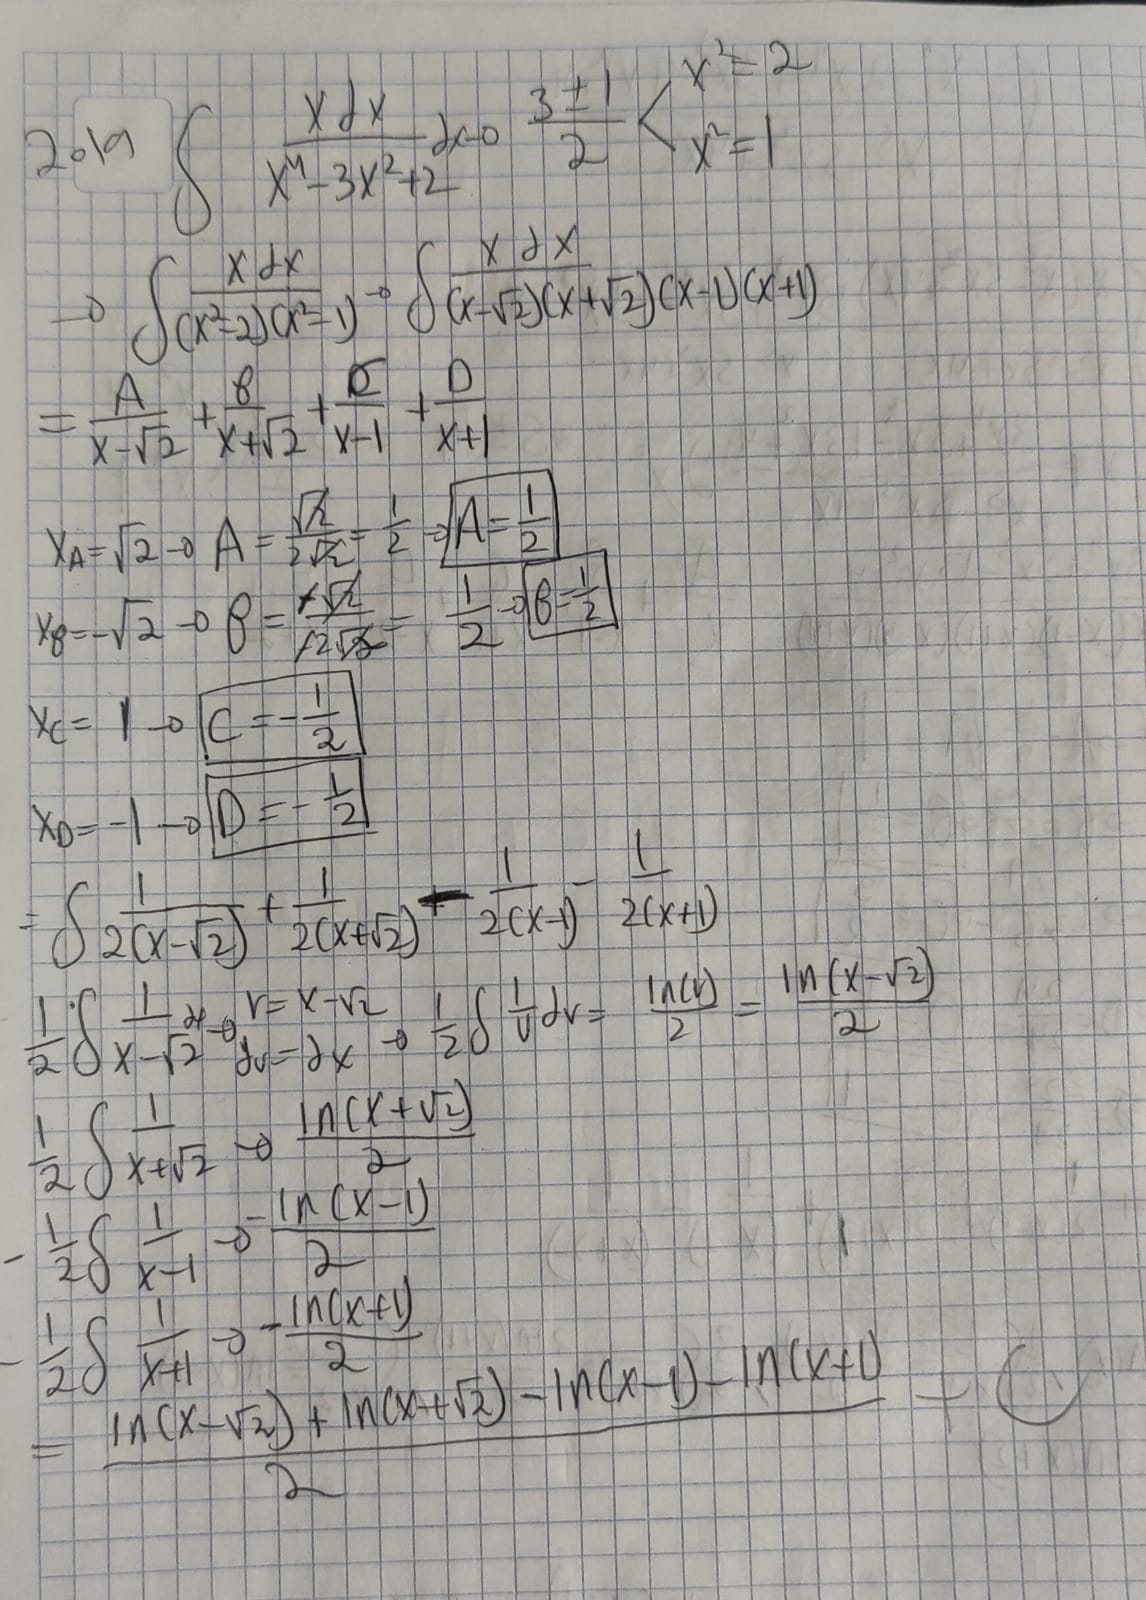 2019 ∫ x dx / (x⁴-3x²+2) dx → (3±1)/2 < x²=2
x²=1
→ ∫ x dx / ((x²-2)(x²-1)) → ∫ x dx / ((x-√2)(x+√2)(x-1)(x+1))
= A/(x-√2) + B/(x+√2) + C/(x-1) + D/(x+1)
x_A=√2 → A = √2/(2√2) = 1/2 → A=1/2
x_B=-√2 → B = -√2/(-2√2) = 1/2 → B=1/2
x_C= 1 → C=-1/2
x_D=-1 → D=-1/2
= ∫ 1/(2(x-√2)) + 1/(2(x+√2)) - 1/(2(x-1)) - 1/(2(x+1))
1/2 ∫ 1/(x-√2) dx → v=x-√2 dv=dx → 1/2 ∫ 1/v dv = ln(v)/2 = ln(x-√2)/2
1/2 ∫ 1/(x+√2) → ln(x+√2)/2
- 1/2 ∫ 1/(x-1) → -ln(x-1)/2
- 1/2 ∫ 1/(x+1) → -ln(x+1)/2
= (ln(x-√2)+ln(x+√2)-ln(x-1)-ln(x+1))/2 + C